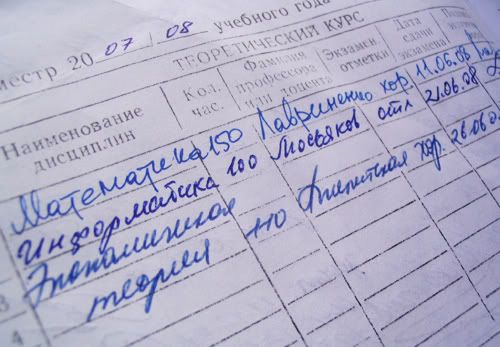 местр 20 07 / 08 учебного года
ТЕОРЕТИЧЕСКИЙ КУРС
Наименование дисциплин
Кол. час.
Фамилия профессора или доцента
Экзамен. отметки
Дата сдачи экзамена
Математика 150 Лавриненко хор. 11.06.08
Информатика 100 Мосьяков отл 21.06.08
3 Экономическая теория 110 хор. 26.06.0
4